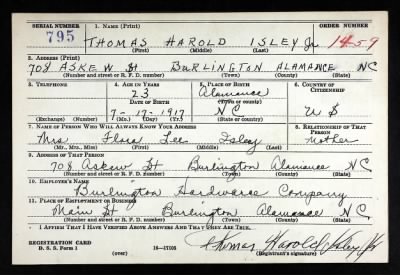 SERIAL NUMBER 1. Name (Print) ORDER NUMBER
795 THOMAS HAROLD ISLEY Jr 1459
(First) (Middle) (Last)
2. Address (Print)
708 ASKEW St BURLINGTON ALAMANCE NC
(Number and street or R. F. D. number) (Town) (County) (State)
3. Telephone 4. Age in Years 5. Place of Birth 6. Country of Citizenship
23 Alamance
Date of Birth (Town or county)
7-17-1917 NC U S
(Exchange) (Number) (Mo.) (Day) (Yr.) (State or country)
7. Name of Person Who Will Always Know Your Address 8. Relationship of That Person
Mrs Flora Lee Isley Mother
(Mr., Mrs., Miss) (First) (Middle) (Last)
9. Address of That Person
708 Askew St Burlington Alamance NC
(Number and street or R. F. D. number) (Town) (County) (State)
10. Employer's Name
Burlington Hardware Company
11. Place of Employment or Business
Main St Burlington Alamance NC
(Number and street or R. F. D. number) (Town) (County) (State)
I Affirm That I Have Verified Above Answers and That They Are True.
REGISTRATION CARD
D. S. S. Form 1 (over) 16-17105 Thomas Harold Isley Jr
(Registrant's signature)